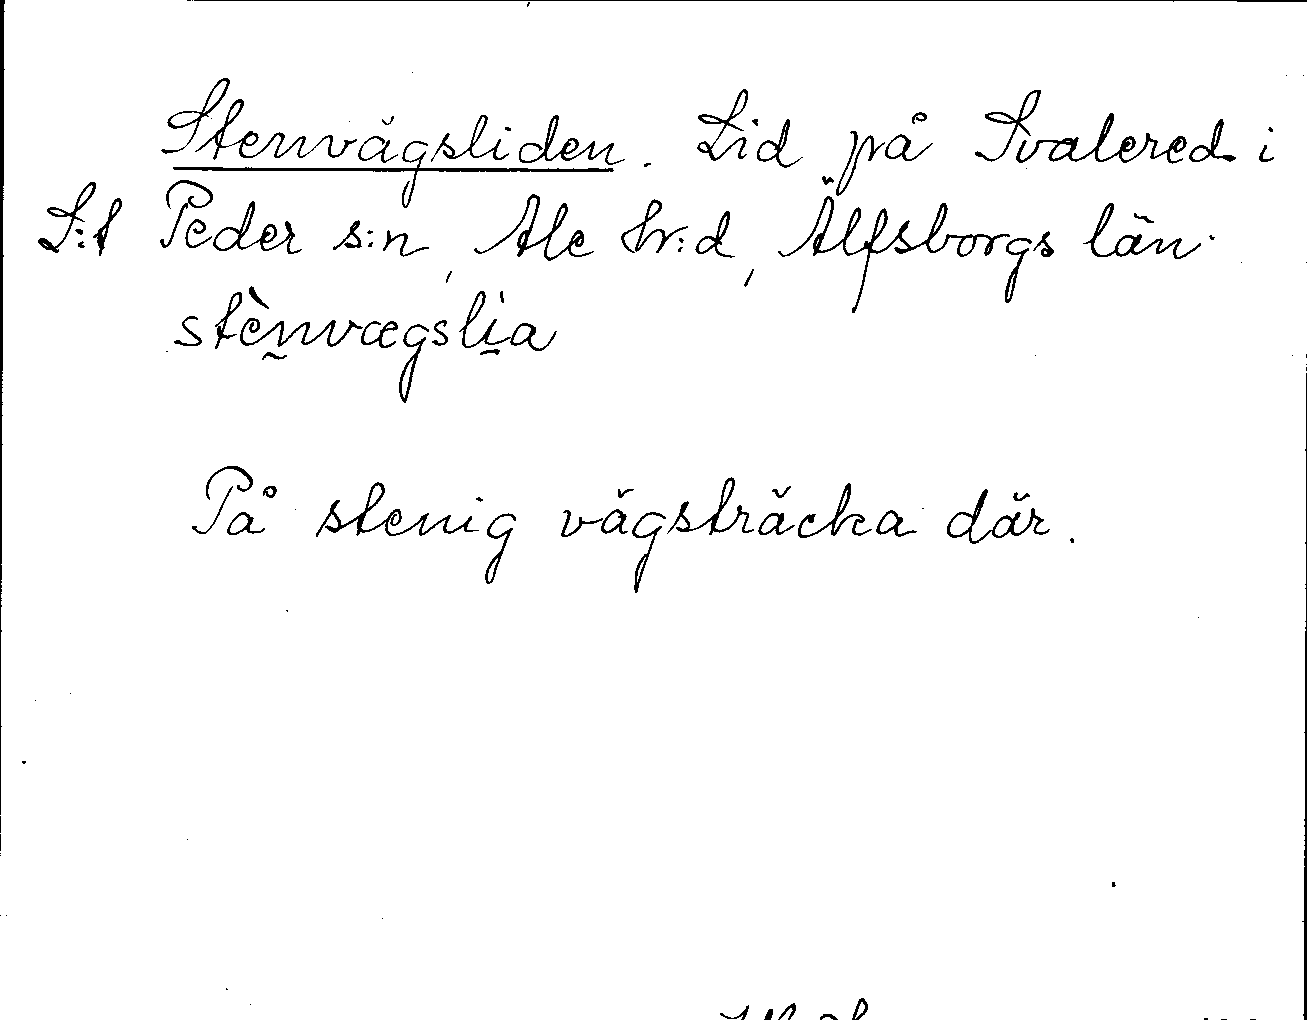 Stenvägsliden. Lid på Svalered i
S:t Peder s:n, Ale hr:d, Älfsborgs län.
stènvægslia
På stenig vägsträcka där.